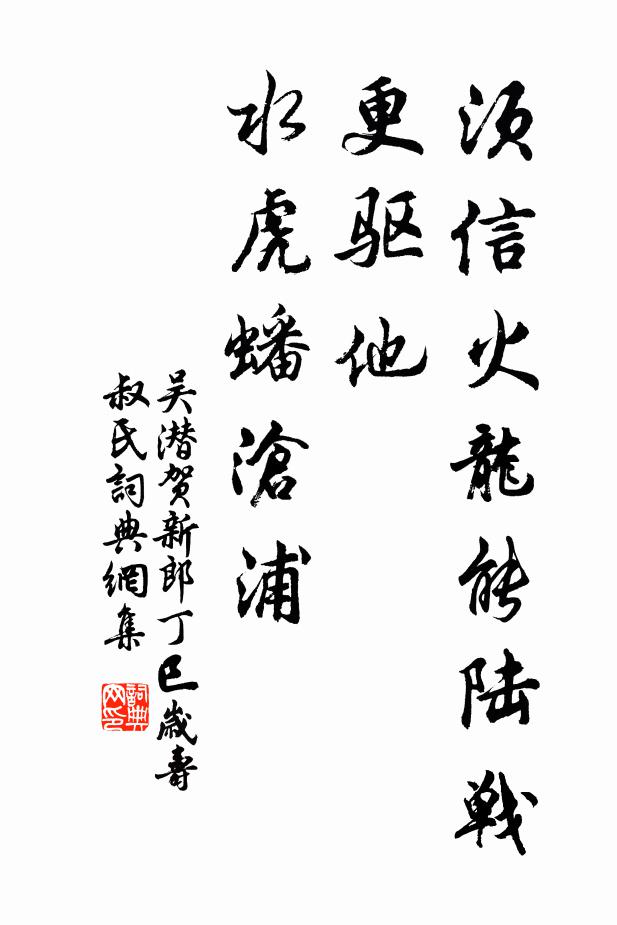 须信火龍能陆戰
更驱他
水虎蟠滄浦
吴潜贺新郎丁巳歲壽
叔氏詞典網集
詞典网印